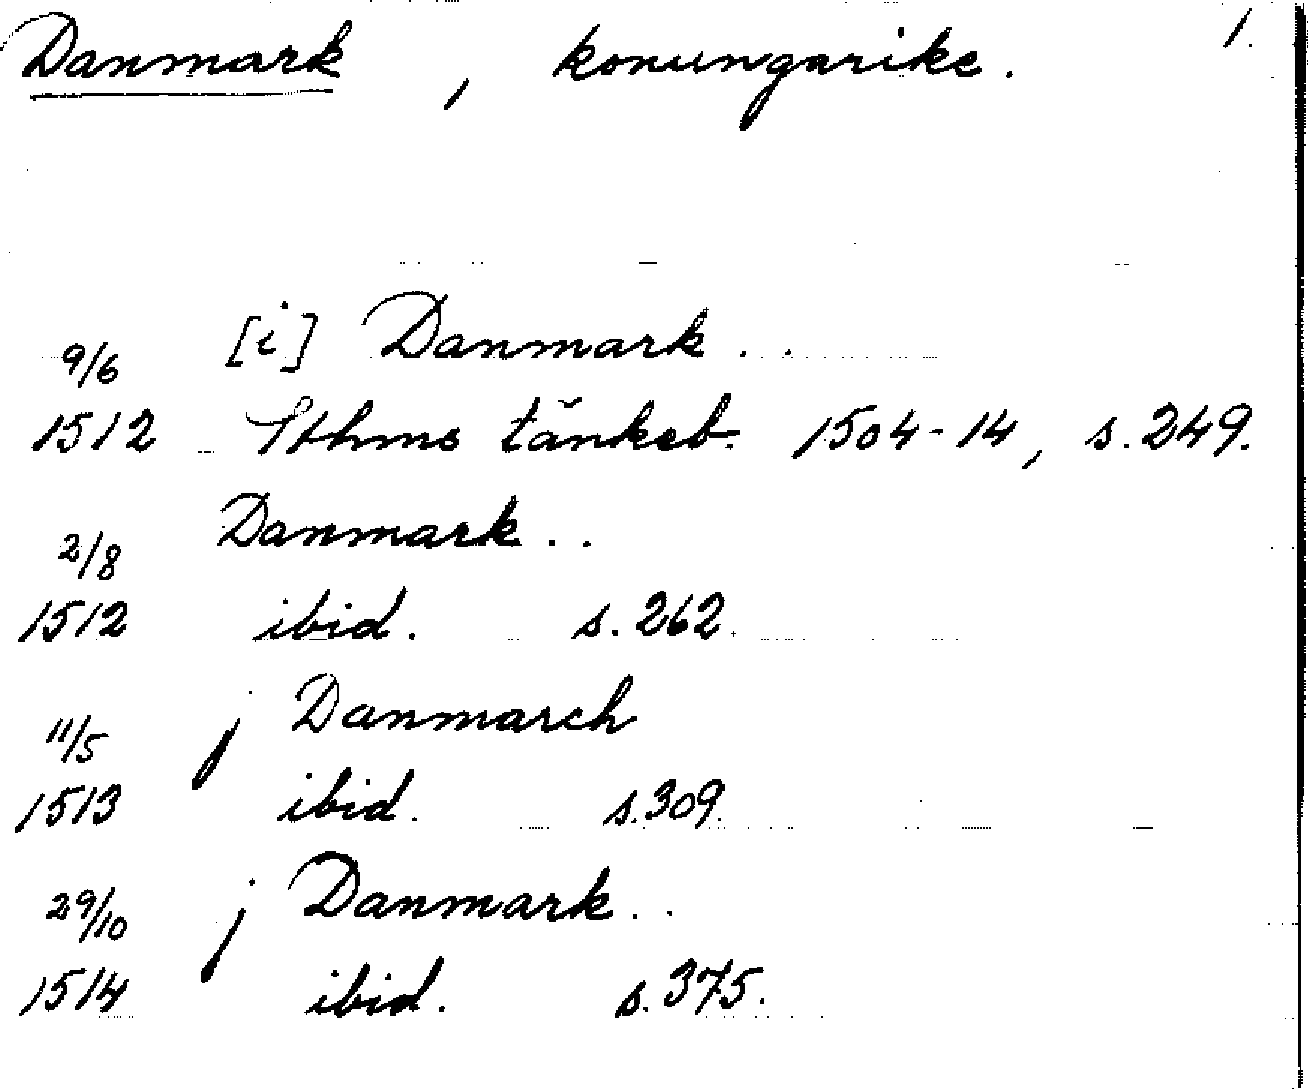 Danmark , konungarike. 1.
9/6 [i] Danmark . .
1512 Sthms tänkeb. 1504-14, s. 249.
2/8 Danmark . .
1512 ibid. s. 262.
11/5 j Danmarch
1513 ibid. s. 309.
29/10 j Danmark . .
1514 ibid. s. 375.